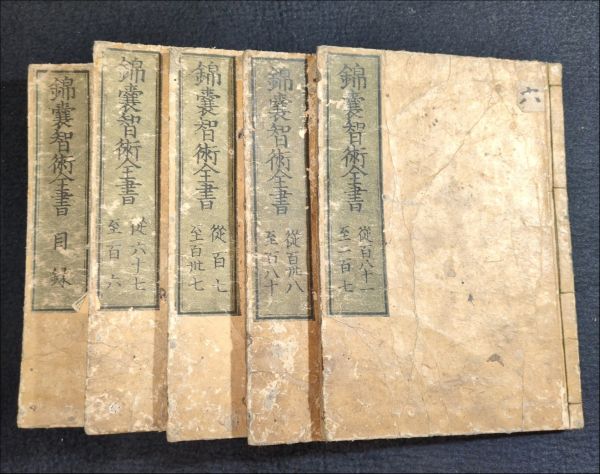 六
錦嚢智術全書
從百八十一
至二百七
錦嚢智術全書
從百卅八
至百八十
錦嚢智術全書
從百七
至百卅七
錦嚢智術全書
從六十七
至百六
錦嚢智術全書
目録